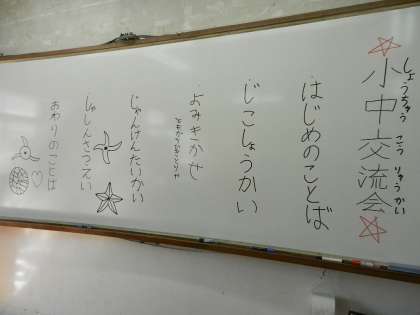 小中交流会
しょうちゅう こう りゅう かい
・はじめのことば
・じこしょうかい
・よみきかせ
・じゃんけんたいかい
・しゃしんさつえい
・おわりのことば